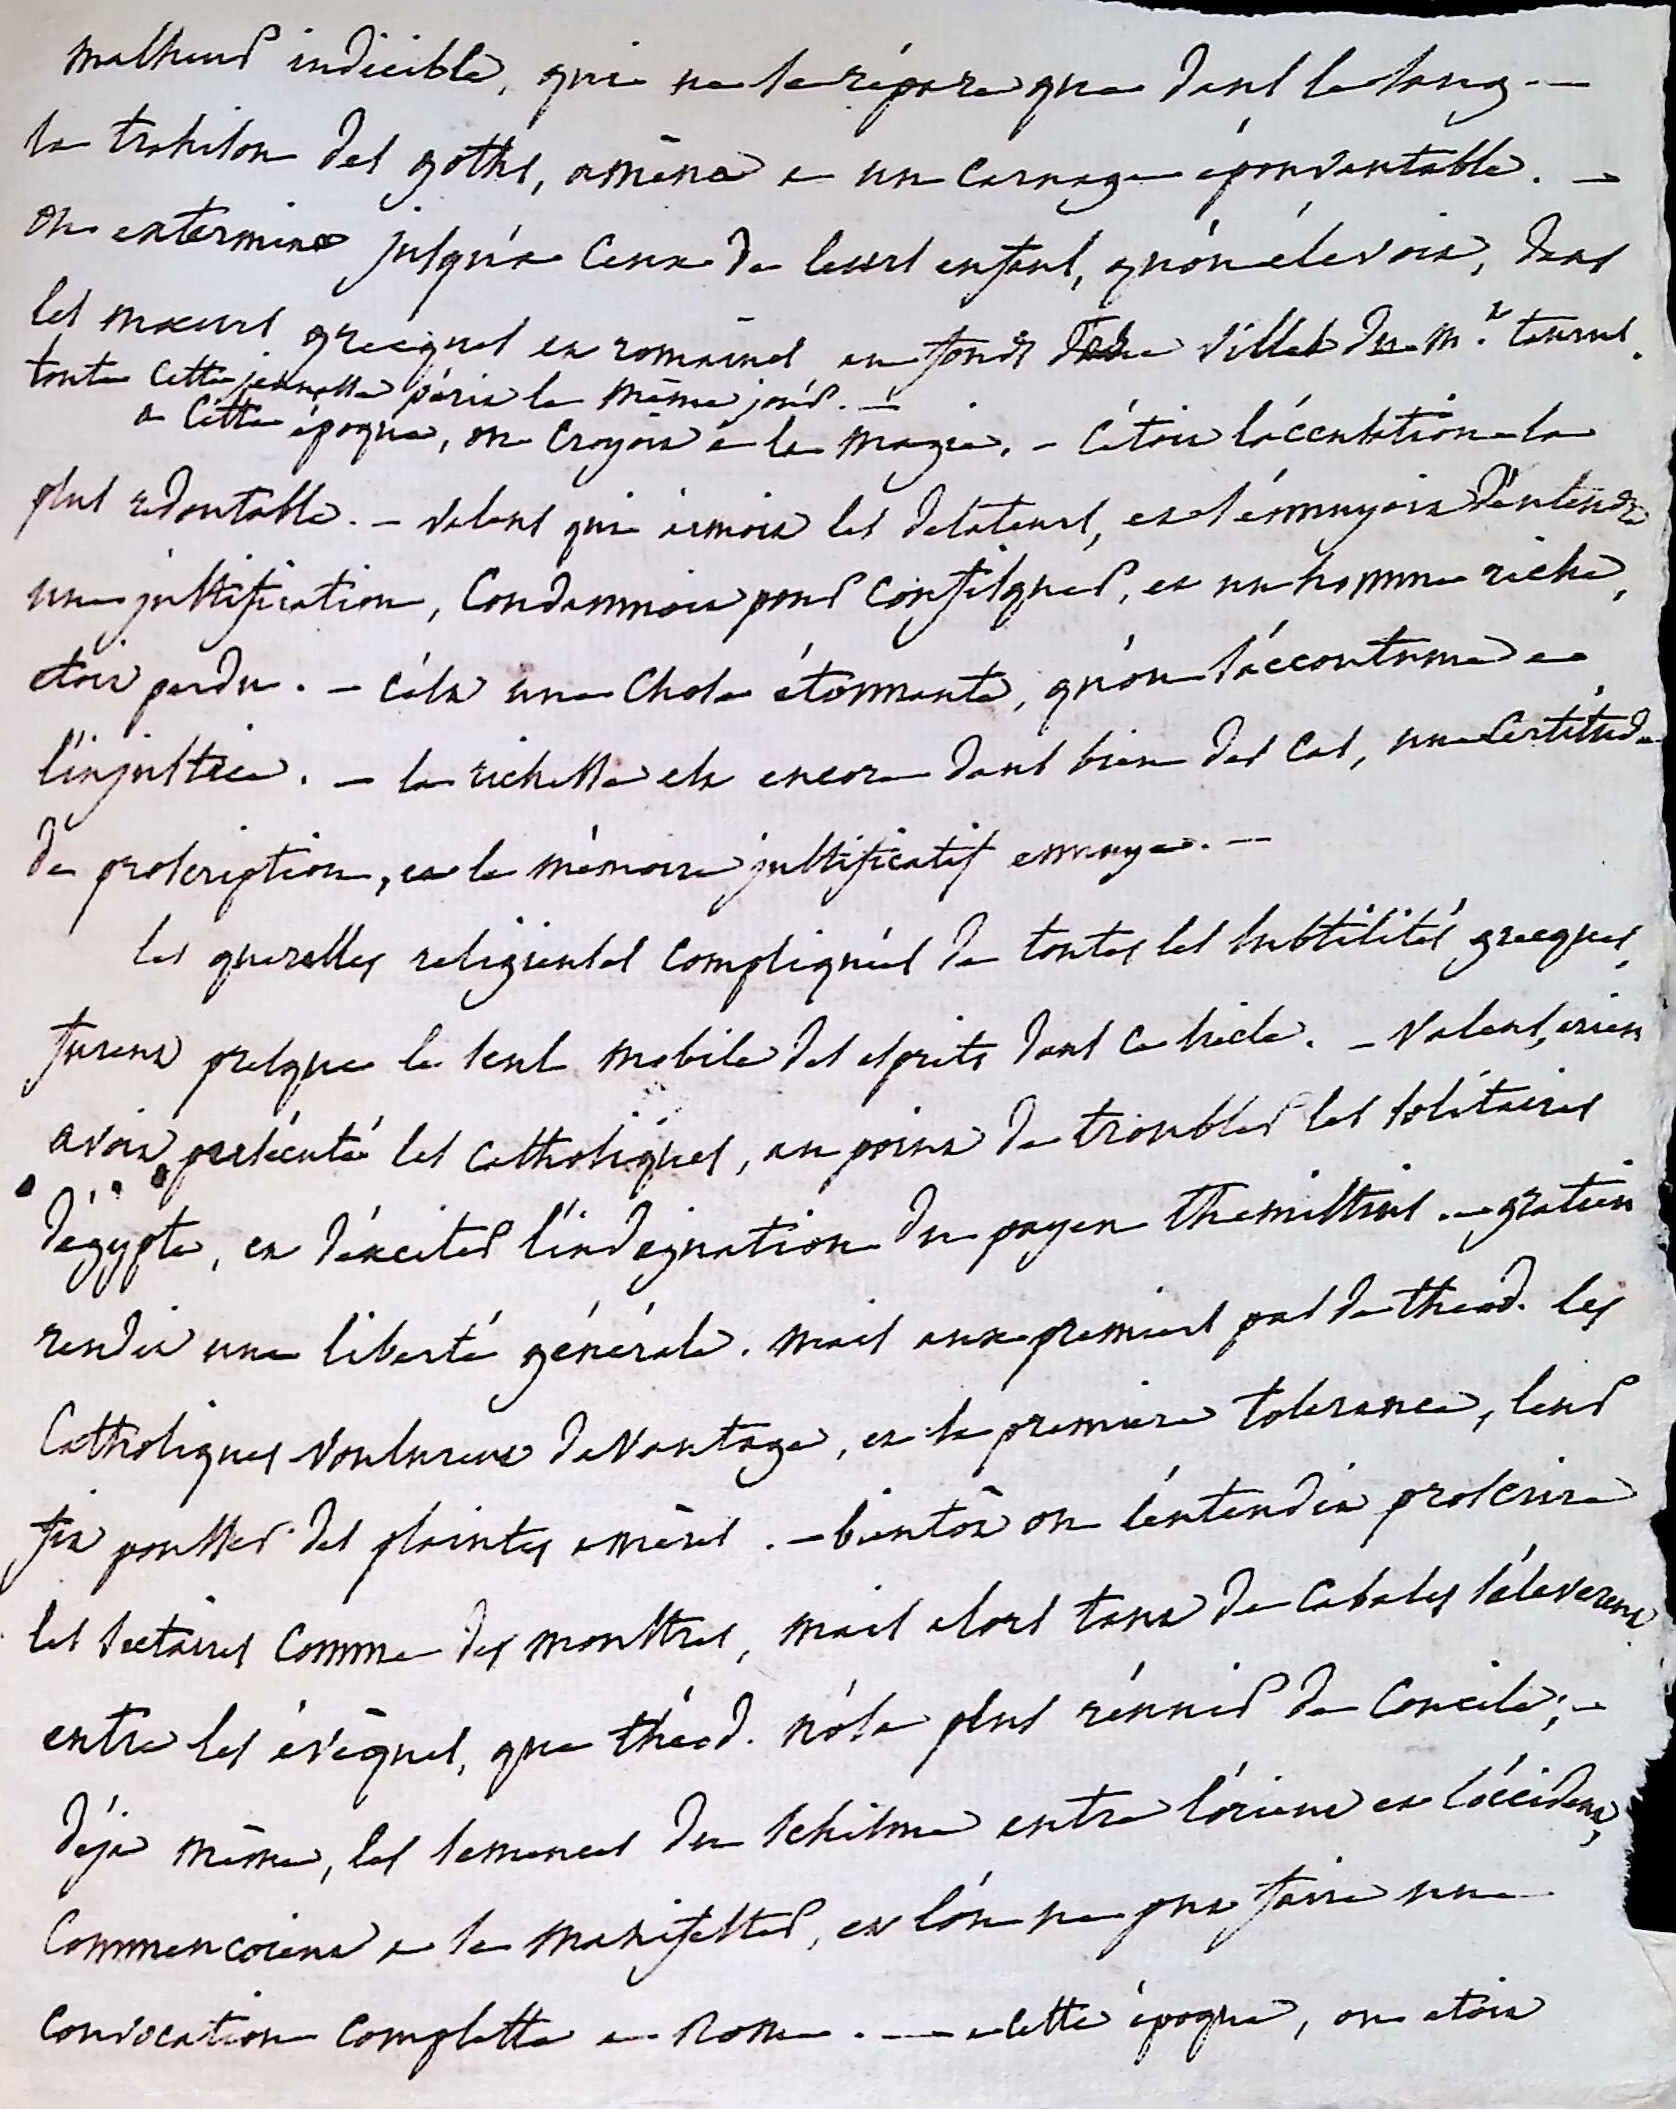 malheur indicible, qui ne se répare que dans le sang. —
la trahison des goths, amèna a un carnage épouvantable. —
on extermina jusqu'à ceux de leurs enfans, qu'on élevoit, dans
les mœurs grecques et romaines au fonds des villes du m.
toute cette jeunesse périt le même jour. —
a cette époque, on croyoit a la magie. — c'étoit l'accusation la
plus redoutable. — valens qui aimoit les delateurs, et s'ennuyoit d'entendre
une justification, condamnoit pour confisquer, et un homme riche,
etoit perdu. — c'est une chose étonnante, qu'on s'accoutume a
l'injustice. — la richesse est encore dans bien des cas, une certitude
de proscription, et le mémoire justificatif ennuye. —
les querelles religieuses compliquées de toutes les subtilités grecques,
furent presque le seul mobile des esprits dans ce siècle. — valens, arien
avoit persécuté les catholiques, au point de troubler les solitaires
d'égypte, et d'exciter l'indignation du payen themistius. — gratien
rendit une liberté générale. mais aux premiers pas de théod. les
catholiques voulurent davantage, et la premiere tolerance, leur
fit pousser des plaintes amères. — bientôt on l'entendit proscrire
les sectaires comme des monstres, mais alors tant de cabales s'éleverent
entre les évêques, que théod. n'osa plus réunir de concile; —
déja même, les semences du schisme entre l'orient et l'occident,
commencoient a se manifester, et l'on ne put faire une
convocation complette a Rome. — a cette époque, on etoit